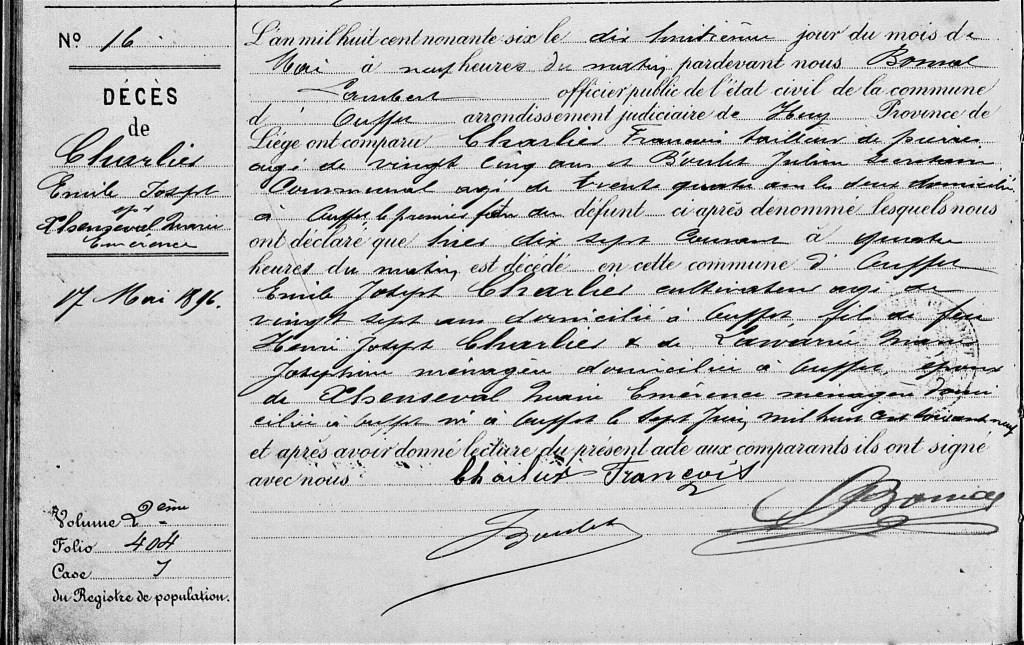 N° 16
DÉCÈS
de
Charlier
Emile Joseph
épx
Xhenseval Marie
Emérence
17 Mai 1896.
Volume 2ème
Folio 404
Case 7
du Registre de population.
L'an mil huit cent nonante-six le dix huitième jour du mois de
Mai à neuf heures du matin, pardevant nous Bonral
Lambert officier public de l'état civil de la commune
d' Ouffet arrondissement judiciaire de Huy Province de
Liége ont comparu Charlier François tailleur de pierres
agé de vingt cinq ans et Boulet Julien Secrétaire
Communal agé de trente quatre ans les deux domiciliés
à Ouffet le premier frère du défunt ci-après dénommé lesquels nous
ont déclaré que hier dix sept Courant à quatre
heures du matin, est décédé en cette commune d' Ouffet
Emile Joseph Charlier cultivateur agé de
vingt sept ans domicilié à Ouffet, fils de feu
Henri Joseph Charlier & de Lawarrée Marie
Josephine ménagère domiciliée à Ouffet, époux
de Xhenseval Marie Emérence ménagère domi
ciliée à Ouffet né à Ouffet le sept Juin mil huit cent soixante neuf
et après avoir donné lecture du présent acte aux comparants ils ont signé
avec nous Charlier François
JBoulet